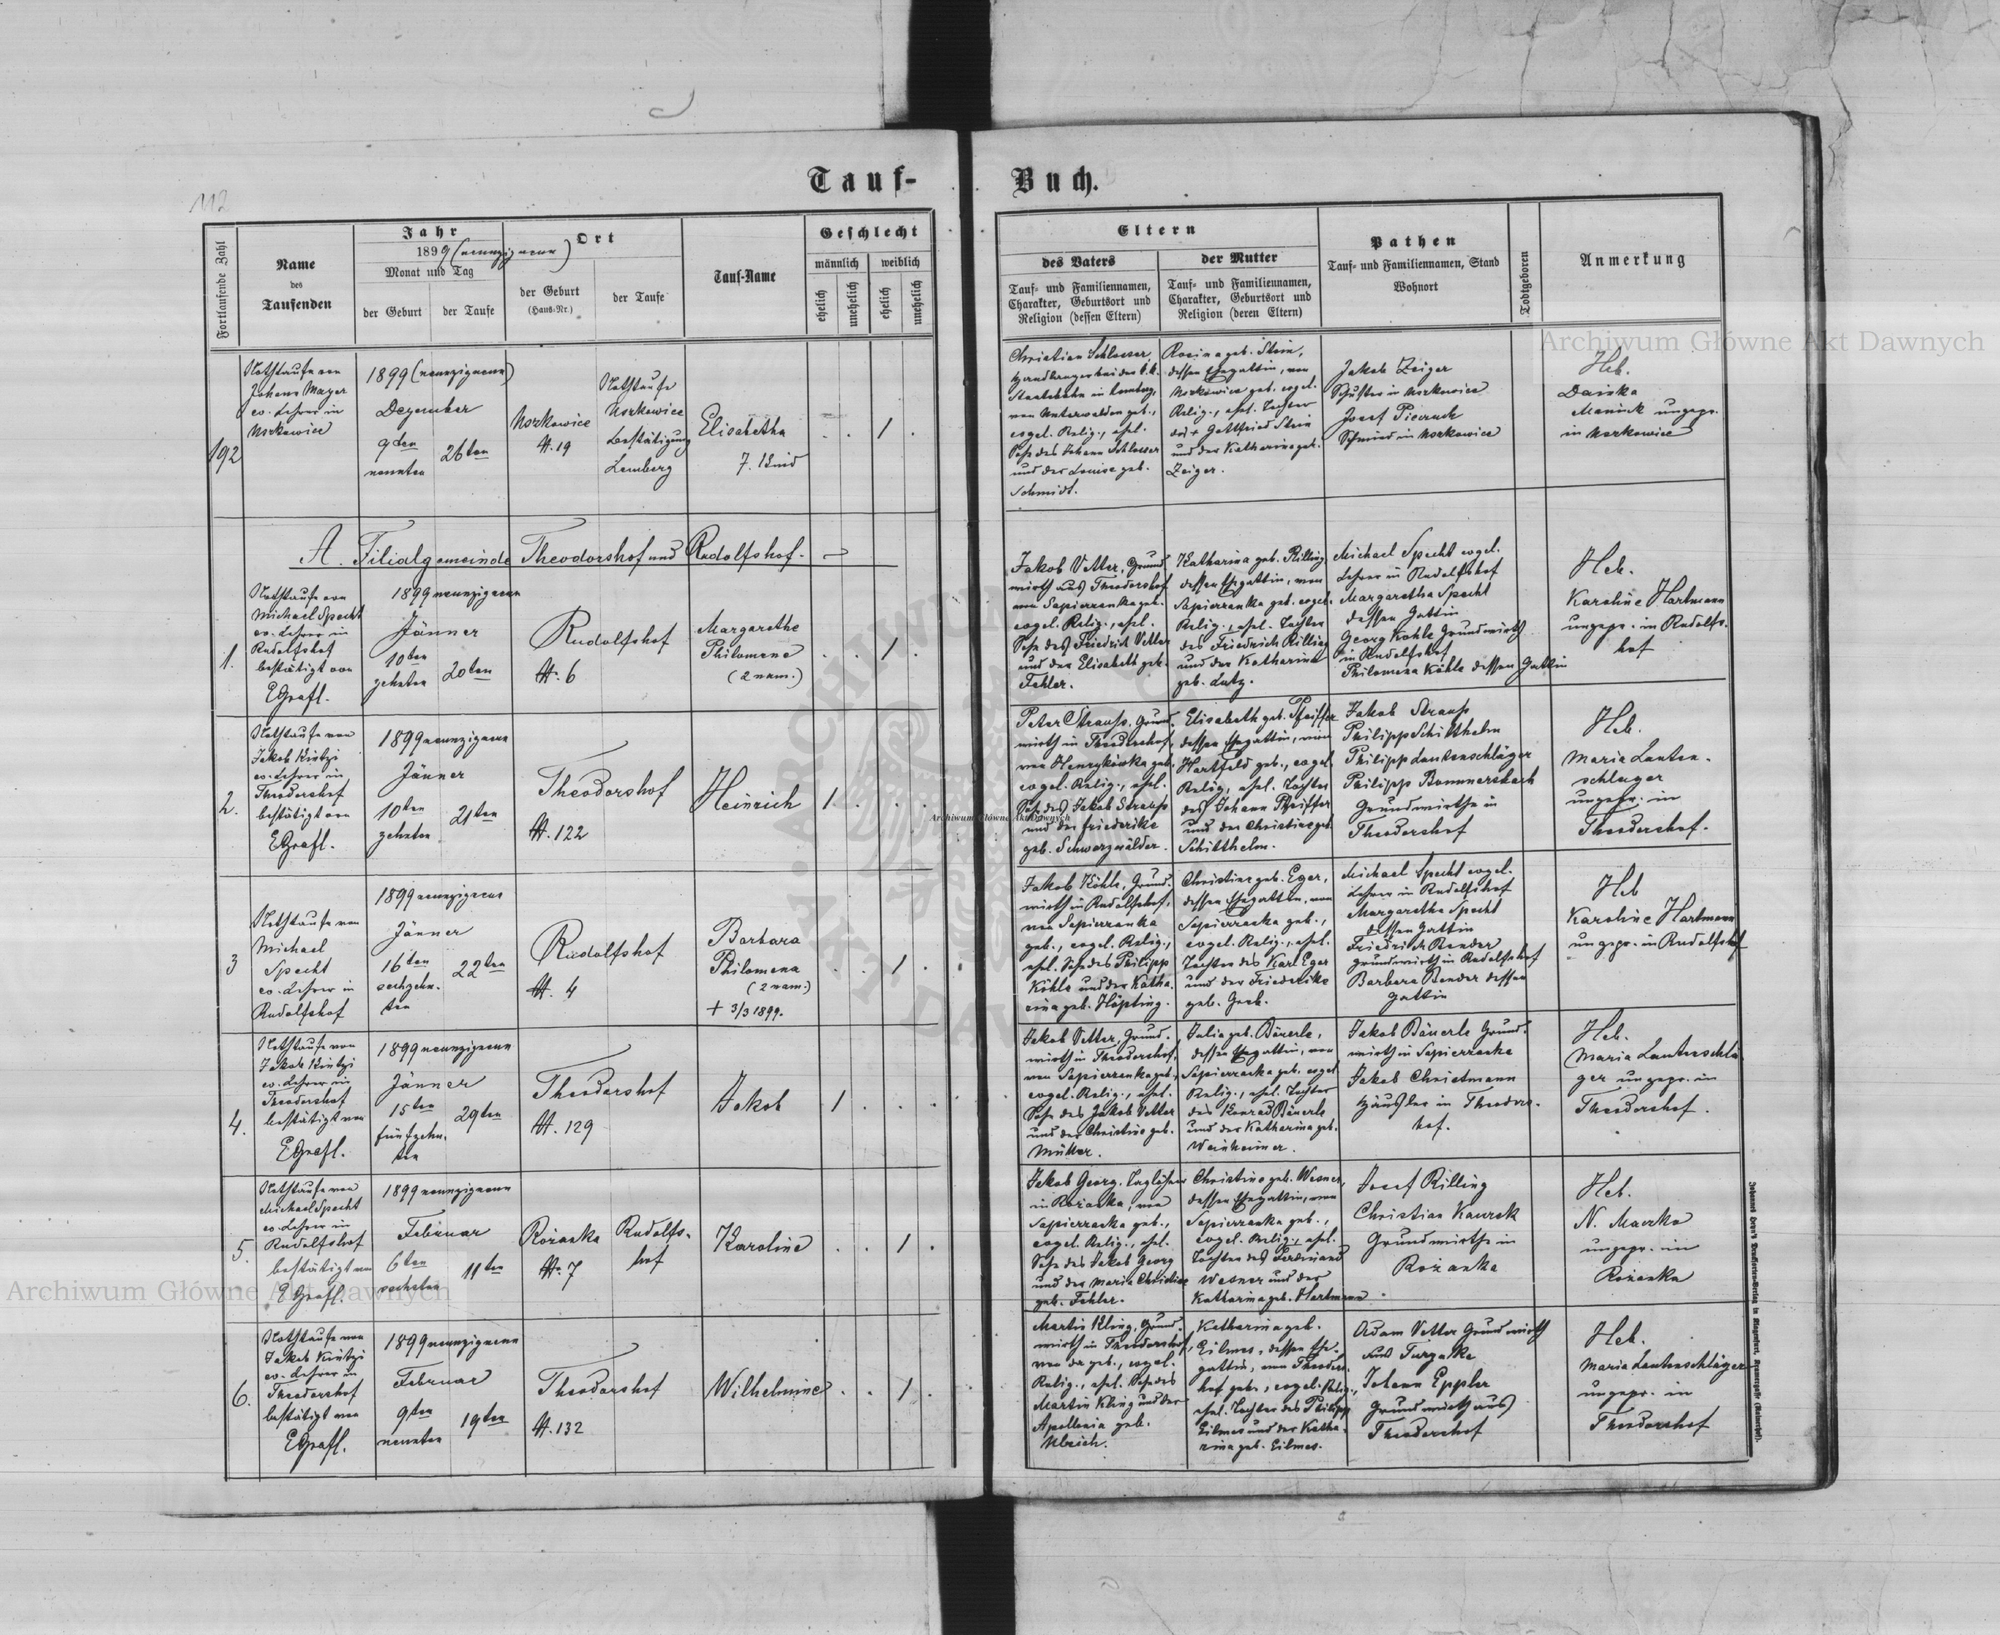 112
Tauf-
Buch.
Fortlaufende Zahl
Name
des
Taufenden
Jahr
1899 (neunzigneun)
Monat und Tag
der Geburt
der Taufe
Ort
der Geburt
(Haus-Nr.)
der Taufe
Tauf-Name
Geschlecht
männlich
weiblich
ehelich
unehelich
ehelich
unehelich
Eltern
des Vaters
Tauf- und Familiennamen,
Charakter, Geburtsort und
Religion (dessen Eltern)
der Mutter
Tauf- und Familiennamen,
Charakter, Geburtsort und
Religion (deren Eltern)
Pathen
Tauf- und Familiennamen, Stand
Wohnort
Todtgeboren
Anmerkung
192
Nothtaufe von
Johann Mayer
ev. Lehrer in
1899 (neunzigneun)
Dezember
9ten
neunten
26ten
N. 19
Nothtaufe
Bestätigung
Lemberg
Elisabetha
1
Christian Schlosser,
Staatsbahn in Lemberg,
von Unterwalden geb.,
evgel. Relig., ehel.
Sohn des Johann Schlosser
und der Louise geb.
Schmidt.
Rosina geb. Stein,
dessen Ehegattin, von
geb. evgel.
Relig., ehel. Tochter
des + Gottfried Stein
und der Katharina geb.
Zeiger.
Jakob Zeiger
Schuster in
Josef
Schmied in
Heb.
ungepr.
in
A. Filialgemeinde Theodorshof und Rudolfshof.
1.
Nothtaufe von
Michael Specht
ev. Lehrer in
Rudolfshof
bestätigt von
EGrafl.
1899 neunzigneun
Jänner
10ten
zehnten
20ten
Rudolfshof
N. 6
Margarethe
Philomene
(2 nam.)
1
Jakob Vetter, Grund-
wirth aus Theodorshof
von Sapiezanka geb.
evgel. Relig., ehel.
Sohn des Friedrich Vetter
und der Elisabeth geb.
Fehler.
Katharina geb. Rilling
dessen Ehegattin, von
Sapiezanka geb. evgel.
Relig., ehel. Tochter
des Friedrich Rilling
und der Katharina
geb. Lutz.
Michael Specht evgel.
Lehrer in Rudolfshof
Margaretha Specht
dessen Gattin
Georg Köhle Grundwirth
in Rudolfshof
Philomena Köhle dessen Gattin
Heb.
Karoline Hartmann
ungepr. in Rudolfs-
hof
2.
Nothtaufe von
Jakob Kintzi
ev. Lehrer in
Theodorshof
bestätigt von
EGrafl.
1899 neunzigneun
Jänner
10ten
zehnten
21ten
Theodorshof
N. 122
Heinrich
1
Peter Strauss, Grund-
wirth in Theodorshof,
von Henrykówka geb.
evgel. Relig., ehel.
Sohn des Jakob Strauss
und der Friederike
geb. Schwarzwälder.
Elisabeth geb. Pfeiffer
dessen Ehegattin, von
Hartfeld geb., evgel.
Relig., ehel. Tochter
des Johann Pfeiffer
und der Christine geb.
Schitthelm.
Jakob Strauss
Philipp Schitthelm
Philipp Lautenschläger
Philipp Bommersbach
Grundwirthe in
Theodorshof
Heb.
Maria Lauten-
schlager
ungepr. in
Theodorshof.
3
Nothtaufe von
Michael
Specht
ev. Lehrer in
Rudolfshof
1899 neunzigneun
Jänner
16ten
sechzehn-
ten
22ten
Rudolfshof
N. 4
Barbara
Philomena
(2 nam.)
+ 3/3 1899.
1
Jakob Köhle, Grund-
wirth in Rudolfshof,
von Sapiezanka
geb., evgel. Relig.,
ehel. Sohn des Philipp
Köhle und der Katha-
rina geb. Höpting.
Christine geb. Eger,
dessen Ehegattin, von
Sapiezanka geb.,
evgel. Relig., ehel.
Tochter des Karl Eger
und der Friederike
geb. Greb.
Michael Specht evgel.
Lehrer in Rudolfshof
Margaretha Specht
dessen Gattin
Friedrich Bender
Grundwirth in Rudolfshof
Barbara Bender dessen
Gattin
Heb
Karoline Hartmann
ungepr. in Rudolfshof
4.
Nothtaufe von
Jakob Kintzi
ev. Lehrer in
Theodorshof
bestätigt von
EGrafl.
1899 neunzigneun
Jänner
15ten
fünfzehn-
ten
29ten
Theodorshof
N. 129
Jakob
1
Jakob Vetter, Grund-
wirth in Theodorshof,
von Sapiezanka geb.,
evgel. Relig., ehel.
Sohn des Jakob Vetter
und der Christine geb.
Müller.
Julia geb. Bäuerle,
dessen Ehegattin, von
Sapiezanka geb. evgel
Relig., ehel. Tochter
des Konrad Bäuerle
und der Katharina geb.
Weinheimer.
Jakob Bäuerle Grund-
wirth in Sapiezanka
Jakob Christmann
Häusler in Theodors-
hof.
Heb.
Maria Lautenschlä
ger ungepr. in
Theodorshof.
5.
Nothtaufe von
Michael Specht
ev. Lehrer in
Rudolfshof
bestätigt von
EGrafl.
1899 neunzigneun
Februar
6ten
sechsten
11ten
Rózanka
N. 7
Rudolfs-
hof
Karoline
1
Jakob Georg, Taglöhner
in Rozanka, von
Sapiezanka geb.,
evgel. Relig., ehel.
Sohn des Jakob Georg
und der Maria Christine
geb. Fehler.
Christine geb. Wesner,
dessen Ehegattin, von
Sapiezanka geb.,
evgel. Relig., ehel.
Tochter des Ferdinand
Wesner und der
Katharina geb. Hartmann
Josef Rilling
Christian
Grundwirthe in
Rozanka
Heb.
ungepr. in
Rozanka
6.
Nothtaufe von
Jakob Kintzi
ev. Lehrer in
Theodorshof
bestätigt von
EGrafl.
1899 neunzigneun
Februar
9ten
neunten
19ten
Theodorshof
N. 132
Wilhelmine
1
Martin Kling, Grund-
wirth in Theodorshof,
von da geb., evgel.
Relig., ehel. Sohn des
Martin Kling und der
Apollonia geb.
Ulrich.
Katharina geb.
Eilmes, dessen Ehe-
gattin, von Theodors-
hof geb., evgel. Relig.,
ehel. Tochter des Philipp
Eilmes und der Katha-
rina geb. Eilmes.
Adam Vetter Grundwirth
aus
Johann Eppler
Grundwirth aus
Theodorshof
Heb.
Maria Lautenschläger
ungepr. in
Theodorshof
Archiwum Główne Akt Dawnych
Archiwum Główne Akt Dawnych
Archiwum Główne Akt Dawnych